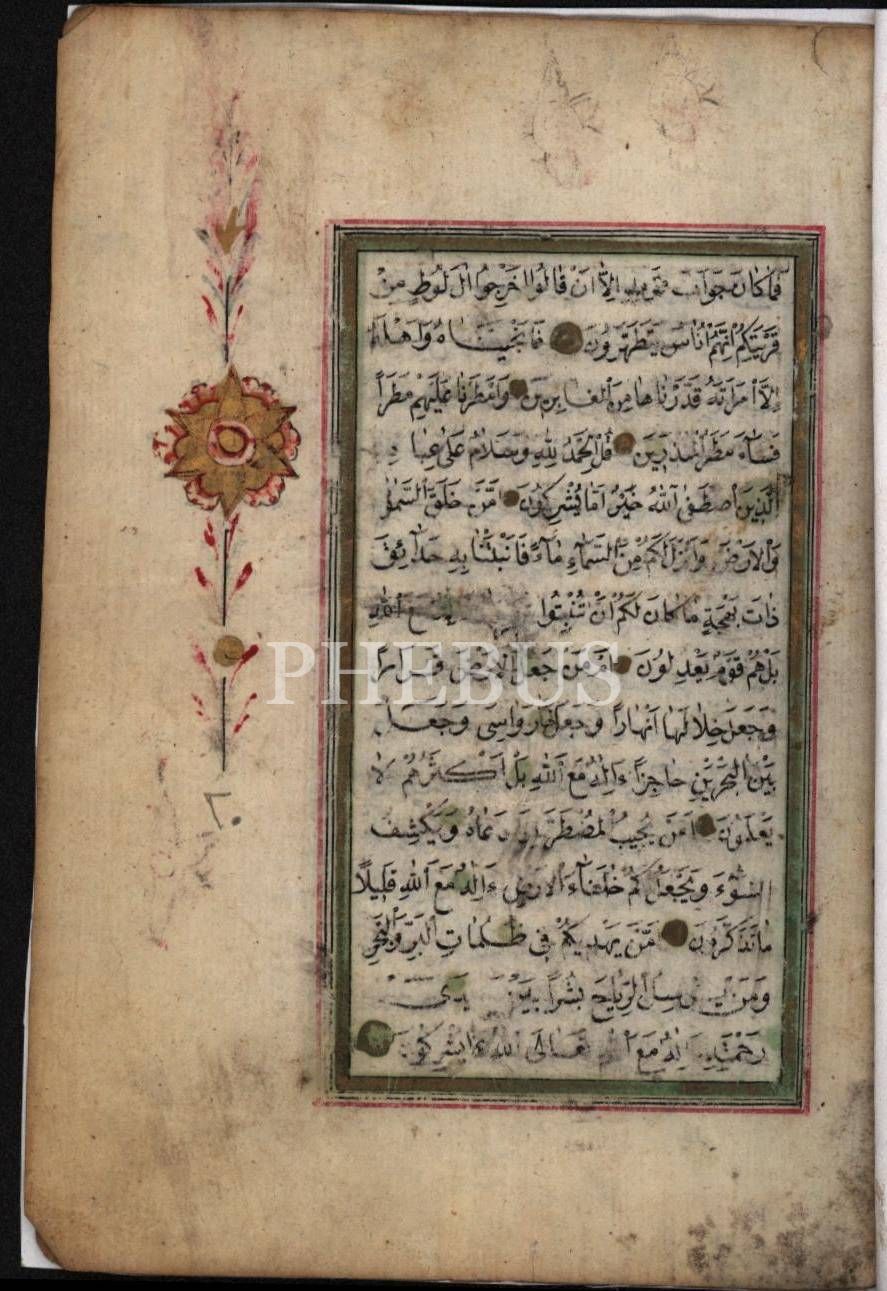 فَمَا كَانَ جَوَابَ قَوْمِهِ اِلَّا اَنْ قَالُوا اَخْرِجُوا اٰلَ لُوطٍ مِنْ
قَرْيَتِكُمْ اِنَّهُمْ اُنَاسٌ يَتَطَهَّرُونَ فَاَنْجَيْنَاهُ وَاَهْلَهُ
اِلَّا امْرَاَتَهُ قَدَّرْنَاهَا مِنَ الْغَابِرِينَ وَاَمْطَرْنَا عَلَيْهِمْ مَطَرًا
فَسَاءَ مَطَرُ الْمُنْذَرِينَ قُلِ الْحَمْدُ لِلّٰهِ وَسَلَامٌ عَلٰى عِبَادِهِ
الَّذِينَ اصْطَفٰى آللّٰهُ خَيْرٌ اَمَّا يُشْرِكُونَ اَمَّنْ خَلَقَ السَّمٰوَاتِ
وَالْاَرْضَ وَاَنْزَلَ لَكُمْ مِنَ السَّمَاءِ مَاءً فَاَنْبَتْنَا بِهِ حَدَائِقَ
ذَاتَ بَهْجَةٍ مَا كَانَ لَكُمْ اَنْ تُنْبِتُوا مَعَ اللّٰهِ
بَلْ هُمْ قَوْمٌ يَعْدِلُونَ اَمَّنْ جَعَلَ الْاَرْضَ قَرَارًا
وَجَعَلَ خِلَالَهَا اَنْهَارًا وَجَعَلَ لَهَا رَوَاسِىَ وَجَعَلَ
بَيْنَ الْبَحْرَيْنِ حَاجِزًا ءَاِلٰهٌ مَعَ اللّٰهِ بَلْ اَكْثَرُهُمْ لَا
يَعْلَمُونَ اَمَّنْ يُجِيبُ الْمُضْطَرَّ اِذَا دَعَاهُ وَيَكْشِفُ
السُّوءَ وَيَجْعَلُكُمْ خُلَفَاءَ الْاَرْضِ ءَاِلٰهٌ مَعَ اللّٰهِ قَلِيلًا
مَا تَذَكَّرُونَ اَمَّنْ يَهْدِيكُمْ فِى ظُلُمَاتِ الْبَرِّ وَالْبَحْرِ
وَمَنْ يُرْسِلُ الرِّيَاحَ بُشْرًا بَيْنَ يَدَىْ
رَحْمَتِهِ ءَاِلٰهٌ مَعَ اللّٰهِ تَعَالَى اللّٰهُ عَمَّا يُشْرِكُونَ
٢٠
PHEBUS